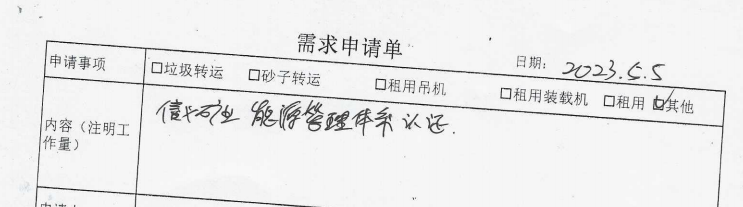 需求申请单
日期: 2023.5.5
申请事项 □垃圾转运 □砂子转运 □租用吊机 □租用装载机 □租用 ☑其他
内容（注明工
作量）
能源管理体系认证.